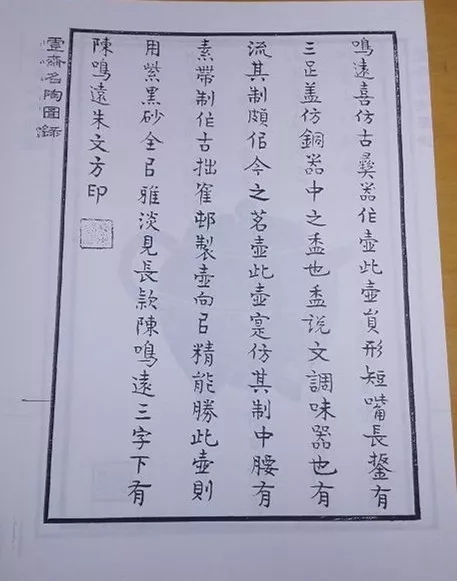 鳴遠喜仿古彝器作壺此壺員形短嘴長鋬有
三足盖仿銅器中之盉也盉説文調味器也有
流其制頗佀今之茗壺此壺寔仿其制中腰有
素帶制作古拙隺邨製壺向㠯精能勝此壺則
用紫黑砂全㠯雅淡見長款陳鳴遠三字下有
陳鳴遠朱文方印
齋名陶圖錄